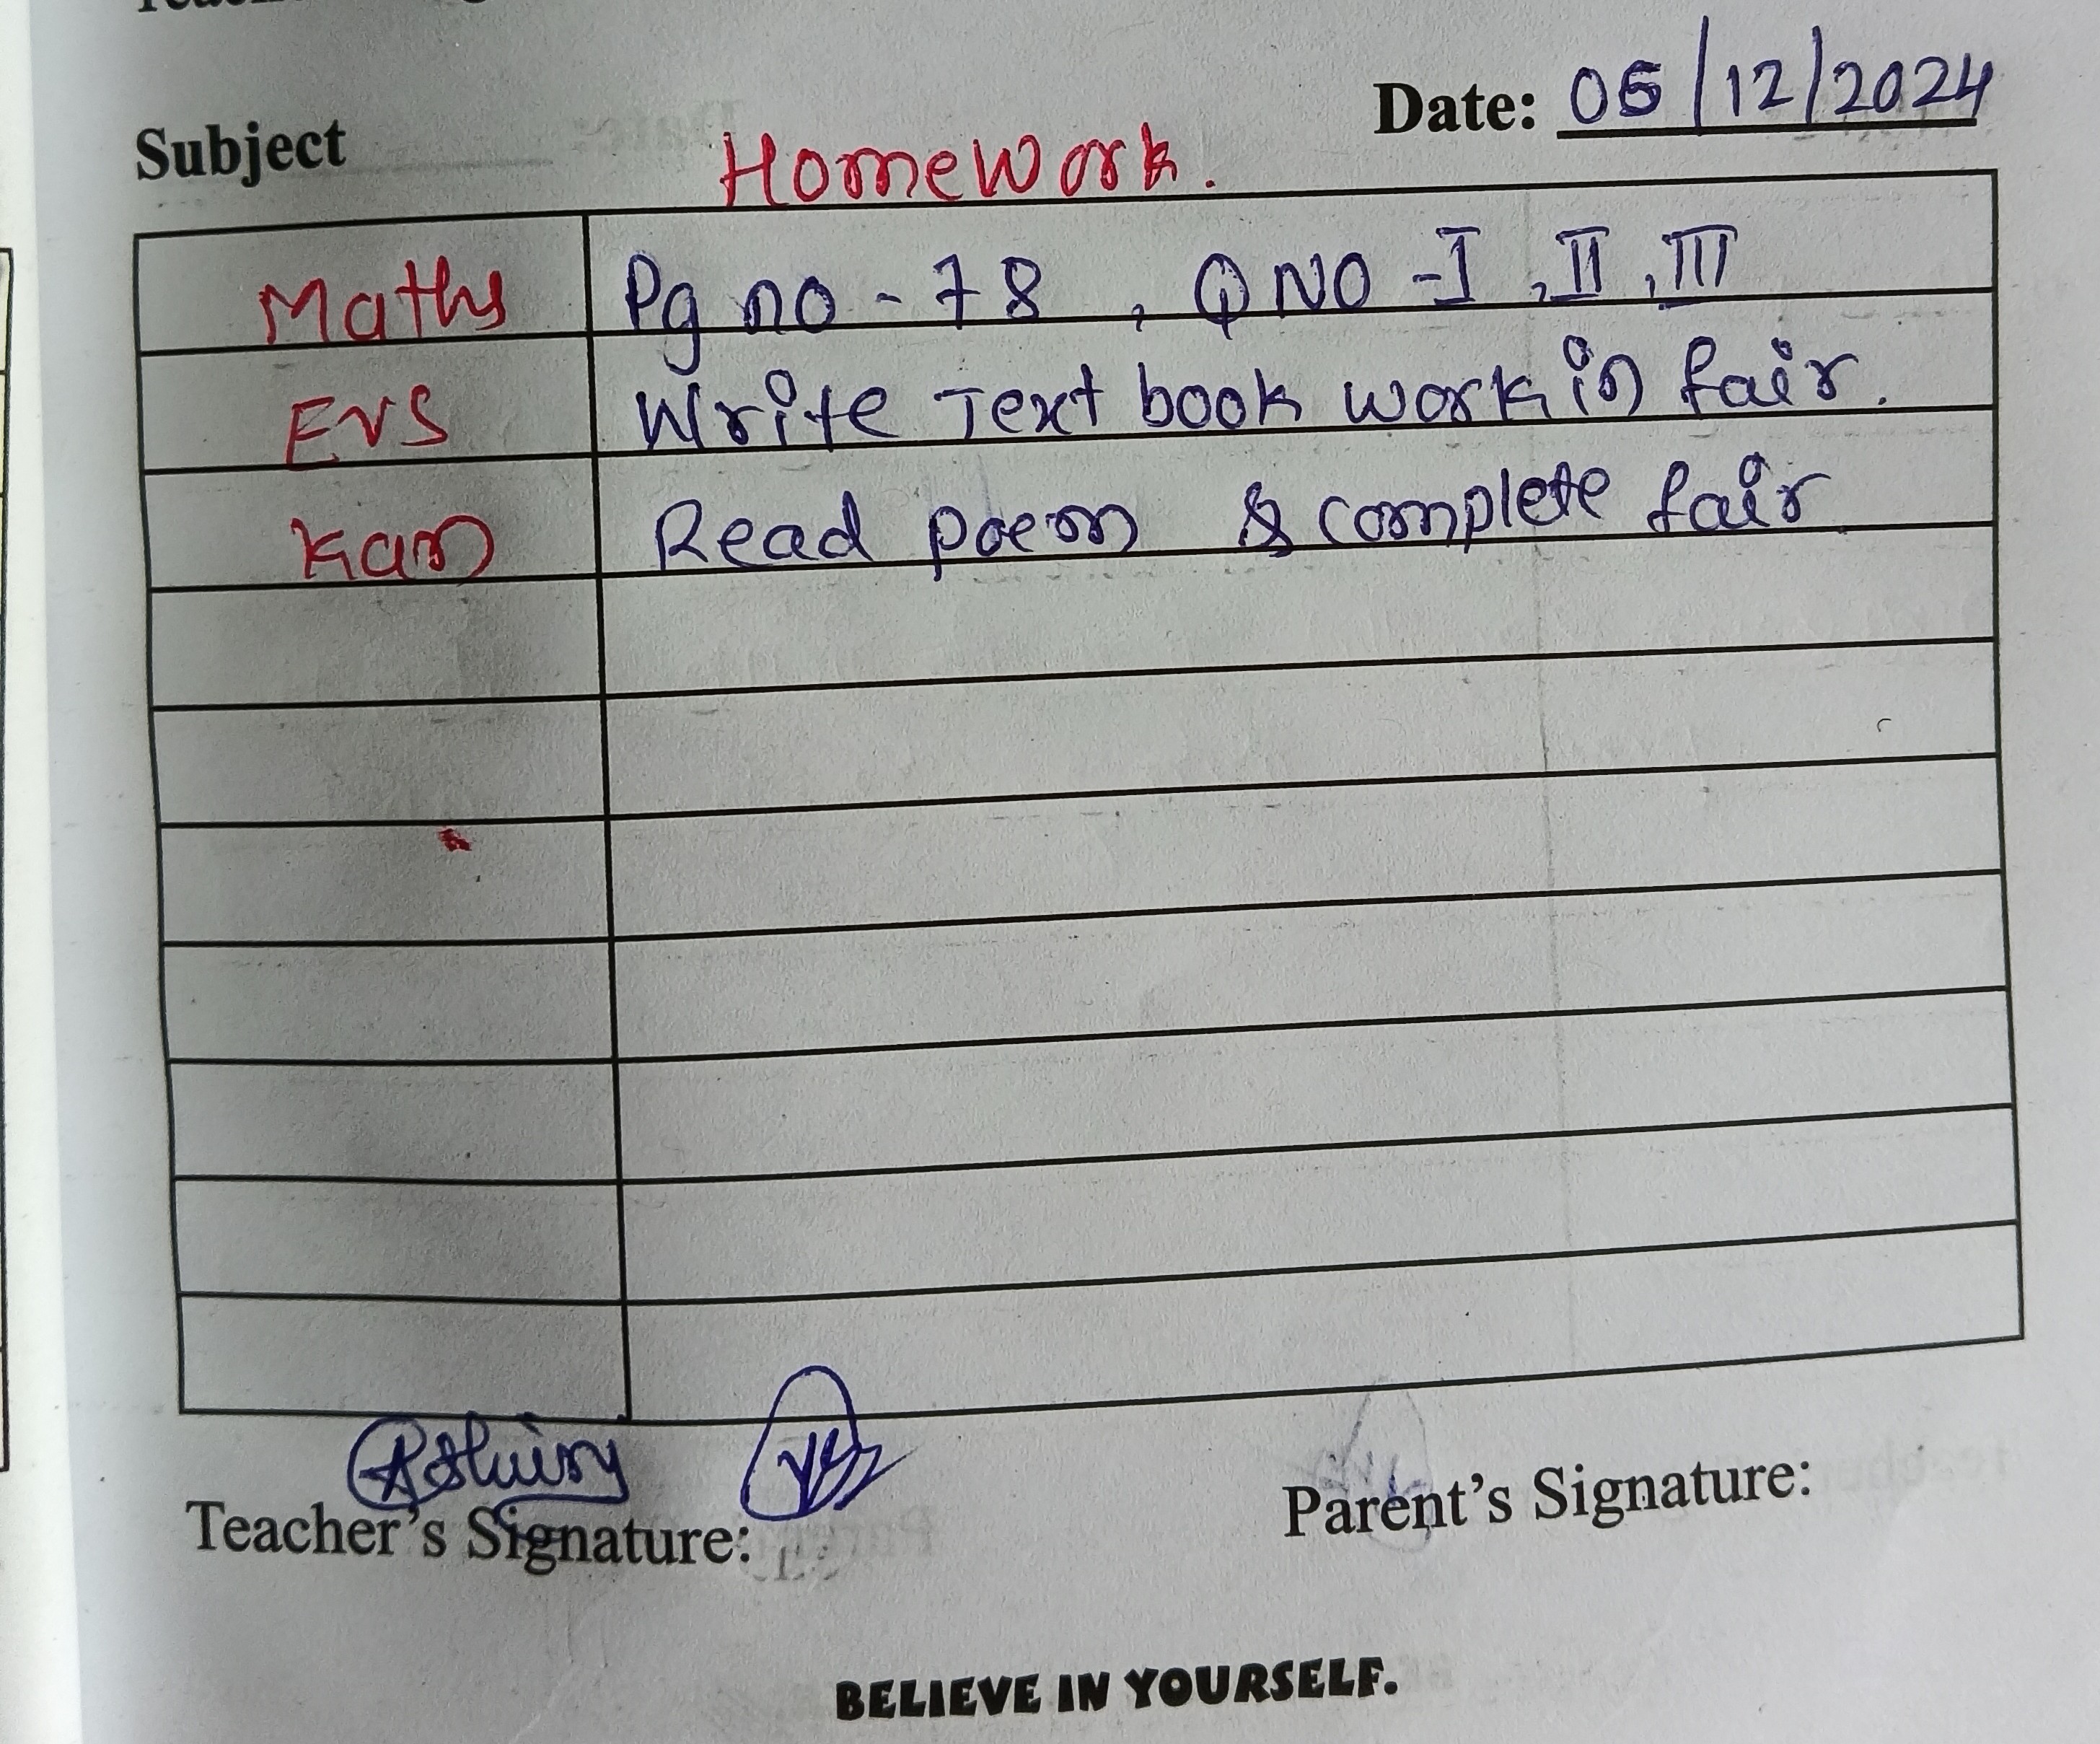 Date: 05/12/2024
Subject
Homework.
Maths Pg no - 78 , Q NO - I , II , III
EVS Write Text book work in fair.
Kan Read poem & complete fair
Teacher's Signature: Parent's Signature:
BELIEVE IN YOURSELF.